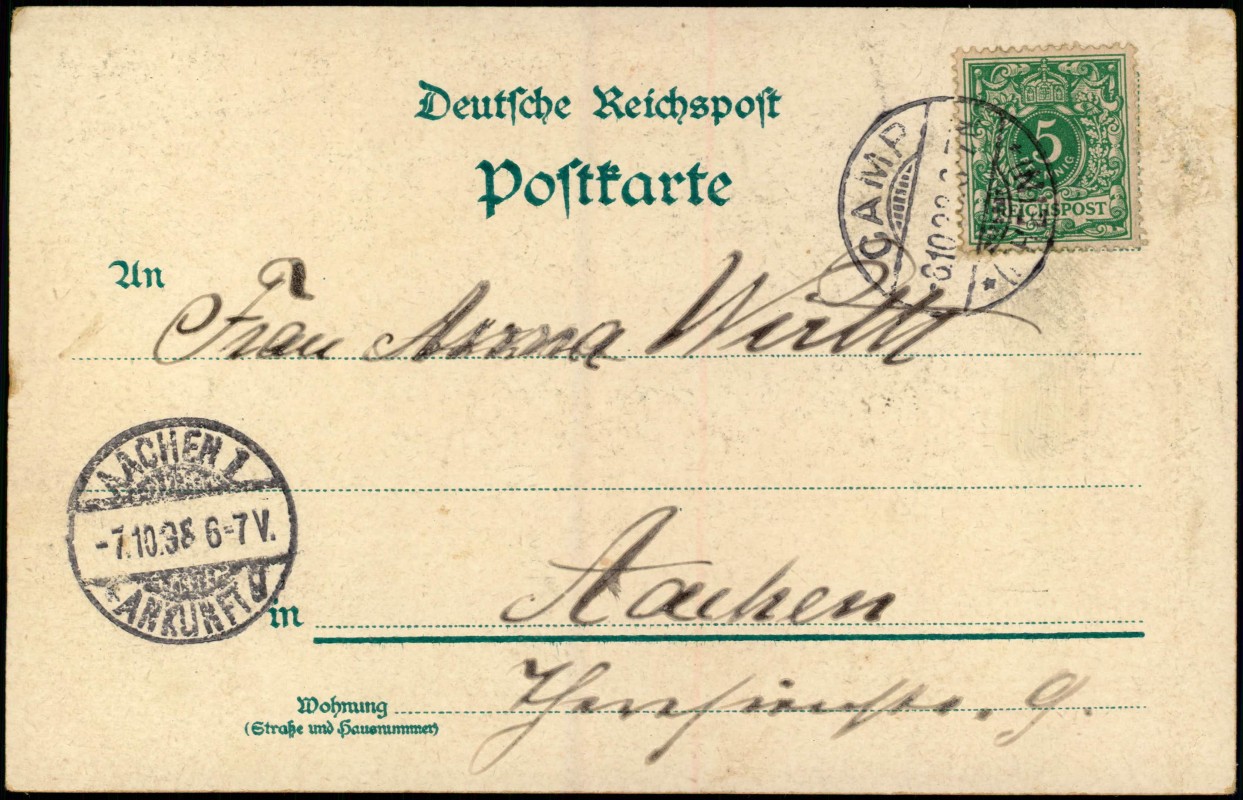 Deutsche Reichspost
Postkarte
5
REICHSPOST
CAMP
6.10.98
An
Frau Anna Wirtz
AACHEN 1.
-7.10.98 6-7V.
ANKUNFT
in
Aachen
Wohnung
(Straße und Hausnummer)
Theresienstr. 9.